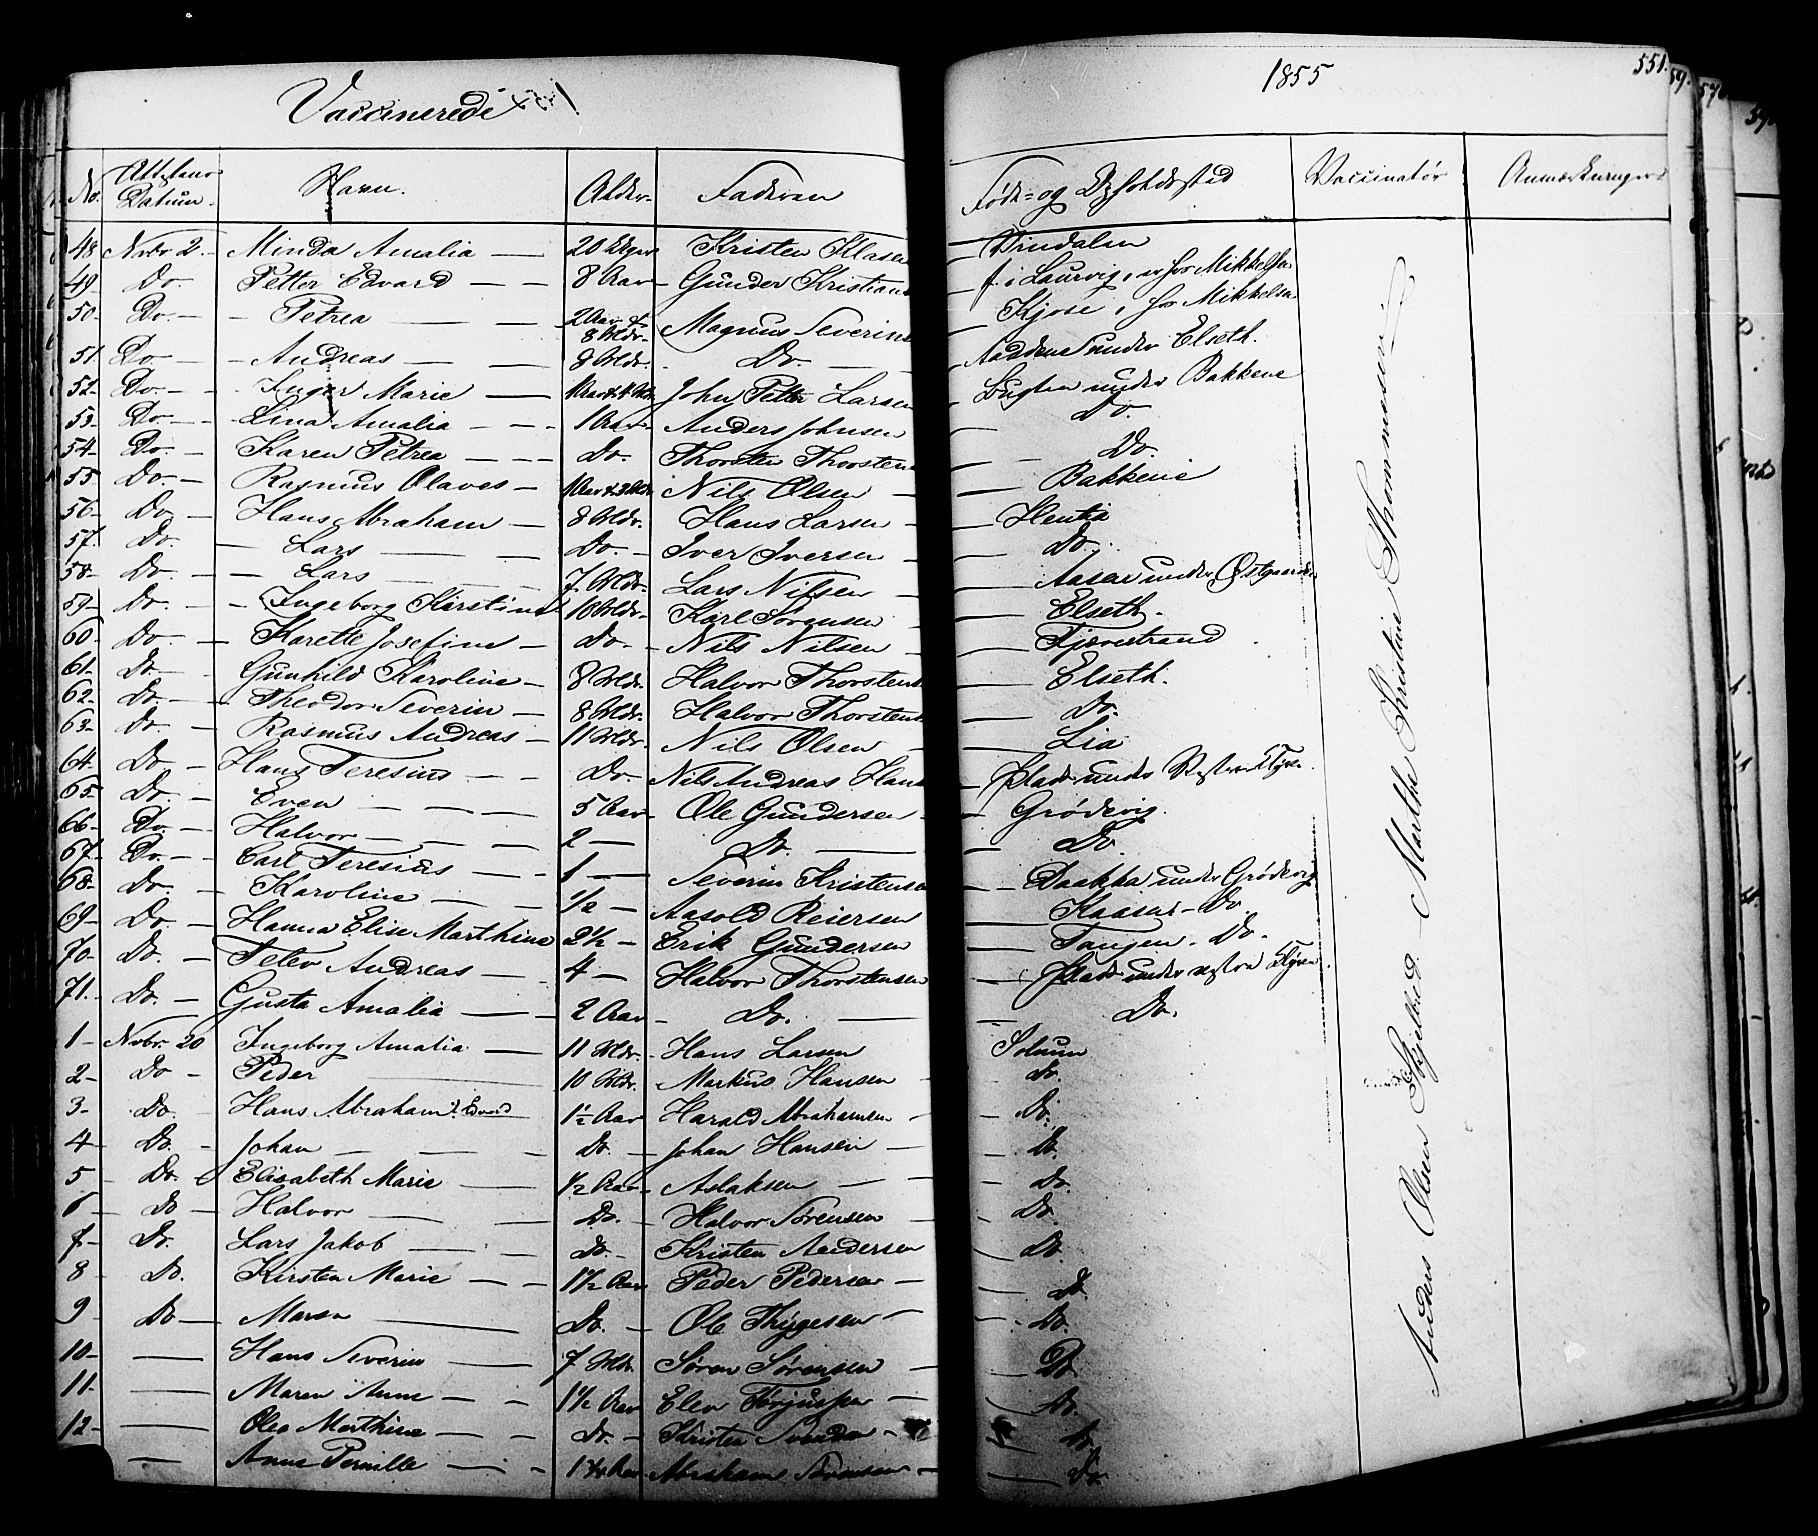 Vaccinerede
1855
551.
No. Attestens Datum. Navn. Alder. Faderen Føde- og Opholdssted Vaccinatør Anmærkninger
48 Nvbr 2. Minda Amalia 20 Uger Kristen Klasen Vindalen
49. Do. Petter Edvard 8 Aar Gunder Kristians f. i Laurvig, er hos Mikkelsen
50. Do. Petrea 2 Aar & 8 Mdr. Magnus Severins Kjose, hos Mikkelsen
51. Do Andreas 8 Mdr. Do. under Elseth.
52. Do. Inger Marie John Petter Larsen Bugten under Bakkene
53. Do Lina Amalia 1 Aar Anders Johnsen Do.
54. Do. Karen Petrea Do. Thorsten Thorstens Do.
55 Do. Rasmus Olaves 1 Aar & 3 Mdr Nils Olsen Bakkene
56. Do Hans Abraham 8 Mdr. Hans Larsen Hentia
57. Do. Lars Do. Iver Iversen Do.
58. Do. Lars 7 Mdr. Lars Nilsen Aasen under Østgaarden
59. Do. Ingeborg Kirstine 10 Mdr. Karl Sørensen Elseth.
60. Do Karette Josefine Do. Nils Nilsen Fjærestrand
61. Do. Gunhild Karoline 8 Mdr. Halvor Thorstens Elseth.
62. Do. Theodor Severin 8 Mdr. Halvor Thorstens Do.
63. Do. Rasmus Andreas 11 Mdr. Nils Olsen Lia
64. Do Hans Teresius Do. Nils Andreas Hans Plads under Vestre
65. Do. Even 5 Aar Ole Gundersen Grødevig.
66. Do. Halvor 2 Do. Do.
67. Do. Carl Teresius 1 Severin Kristensen Daakka under Grødevig
68. Do. Karoline 1/2 Aasold Reiersen Kaasene Do.
69. Do. Hanna Elise Marthine 2 1/2 Erik Gundersen Tangen. Do.
70. Do. Peter Andreas 4 Halvor Thorstensen Plads under vestre
71. Do. Gusta Amalia 2 Aar Do. Do.
1 Nvbr. 20 Ingeborg Amalia 11 Mdr. Hans Larsen Solum
2 Do Peder 10 Mdr. Markus Hansen Do.
3 Do. Hans Abraham Edvard 1 1/2 Aar Harald Abrahamsen Do.
4 Do. Johan Do. Johan Hansen Do.
5 Do. Elisabeth Marie 1/2 Aar Aslaksen Do.
6 Do Halvor Do. Halvor Sørensen Do.
7 Do. Lars Jakob Do. Kristen Andersen Do.
8 Do. Kirsten Marie 1 1/2 Aar Peder Pedersen Do.
9 Do Maren Do. Ole Thygesen Do.
10 Hans Severin 7 Mdr. Søren Sørensen Do.
11 Maren Anne 1 1/2 Aar Elev Do.
12 Olea Marthine Do. Kristen Svendsen Do.
Anne Pernille 1 3/4 Aar Abraham Sørensen Do.
Anders Olsen Skjelbred. Marthe Kristine Thommasen